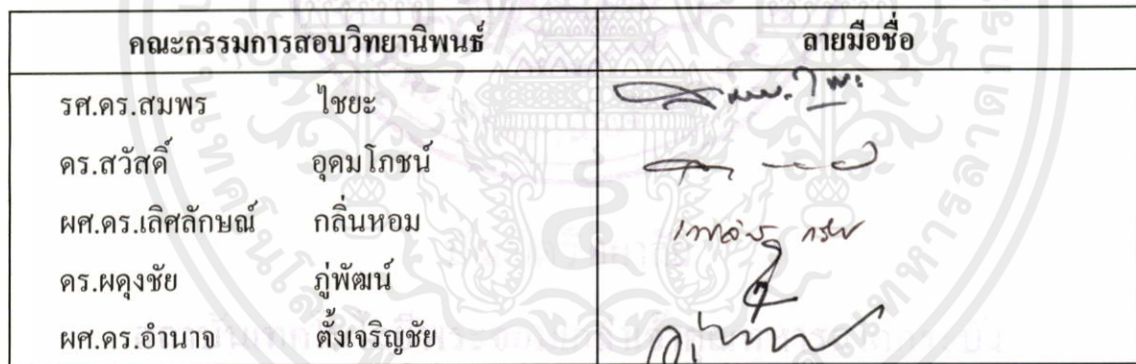 คณะกรรมการสอบวิทยานิพนธ์ ลายมือชื่อ
รศ.ดร.สมพร ไชยะ
ดร.สวัสดิ์ อุดมโภชน์
ผศ.ดร.เลิศลักษณ์ กลิ่นหอม
ดร.ผดุงชัย ภู่พัฒน์
ผศ.ดร.อำนาจ ตั้งเจริญชัย